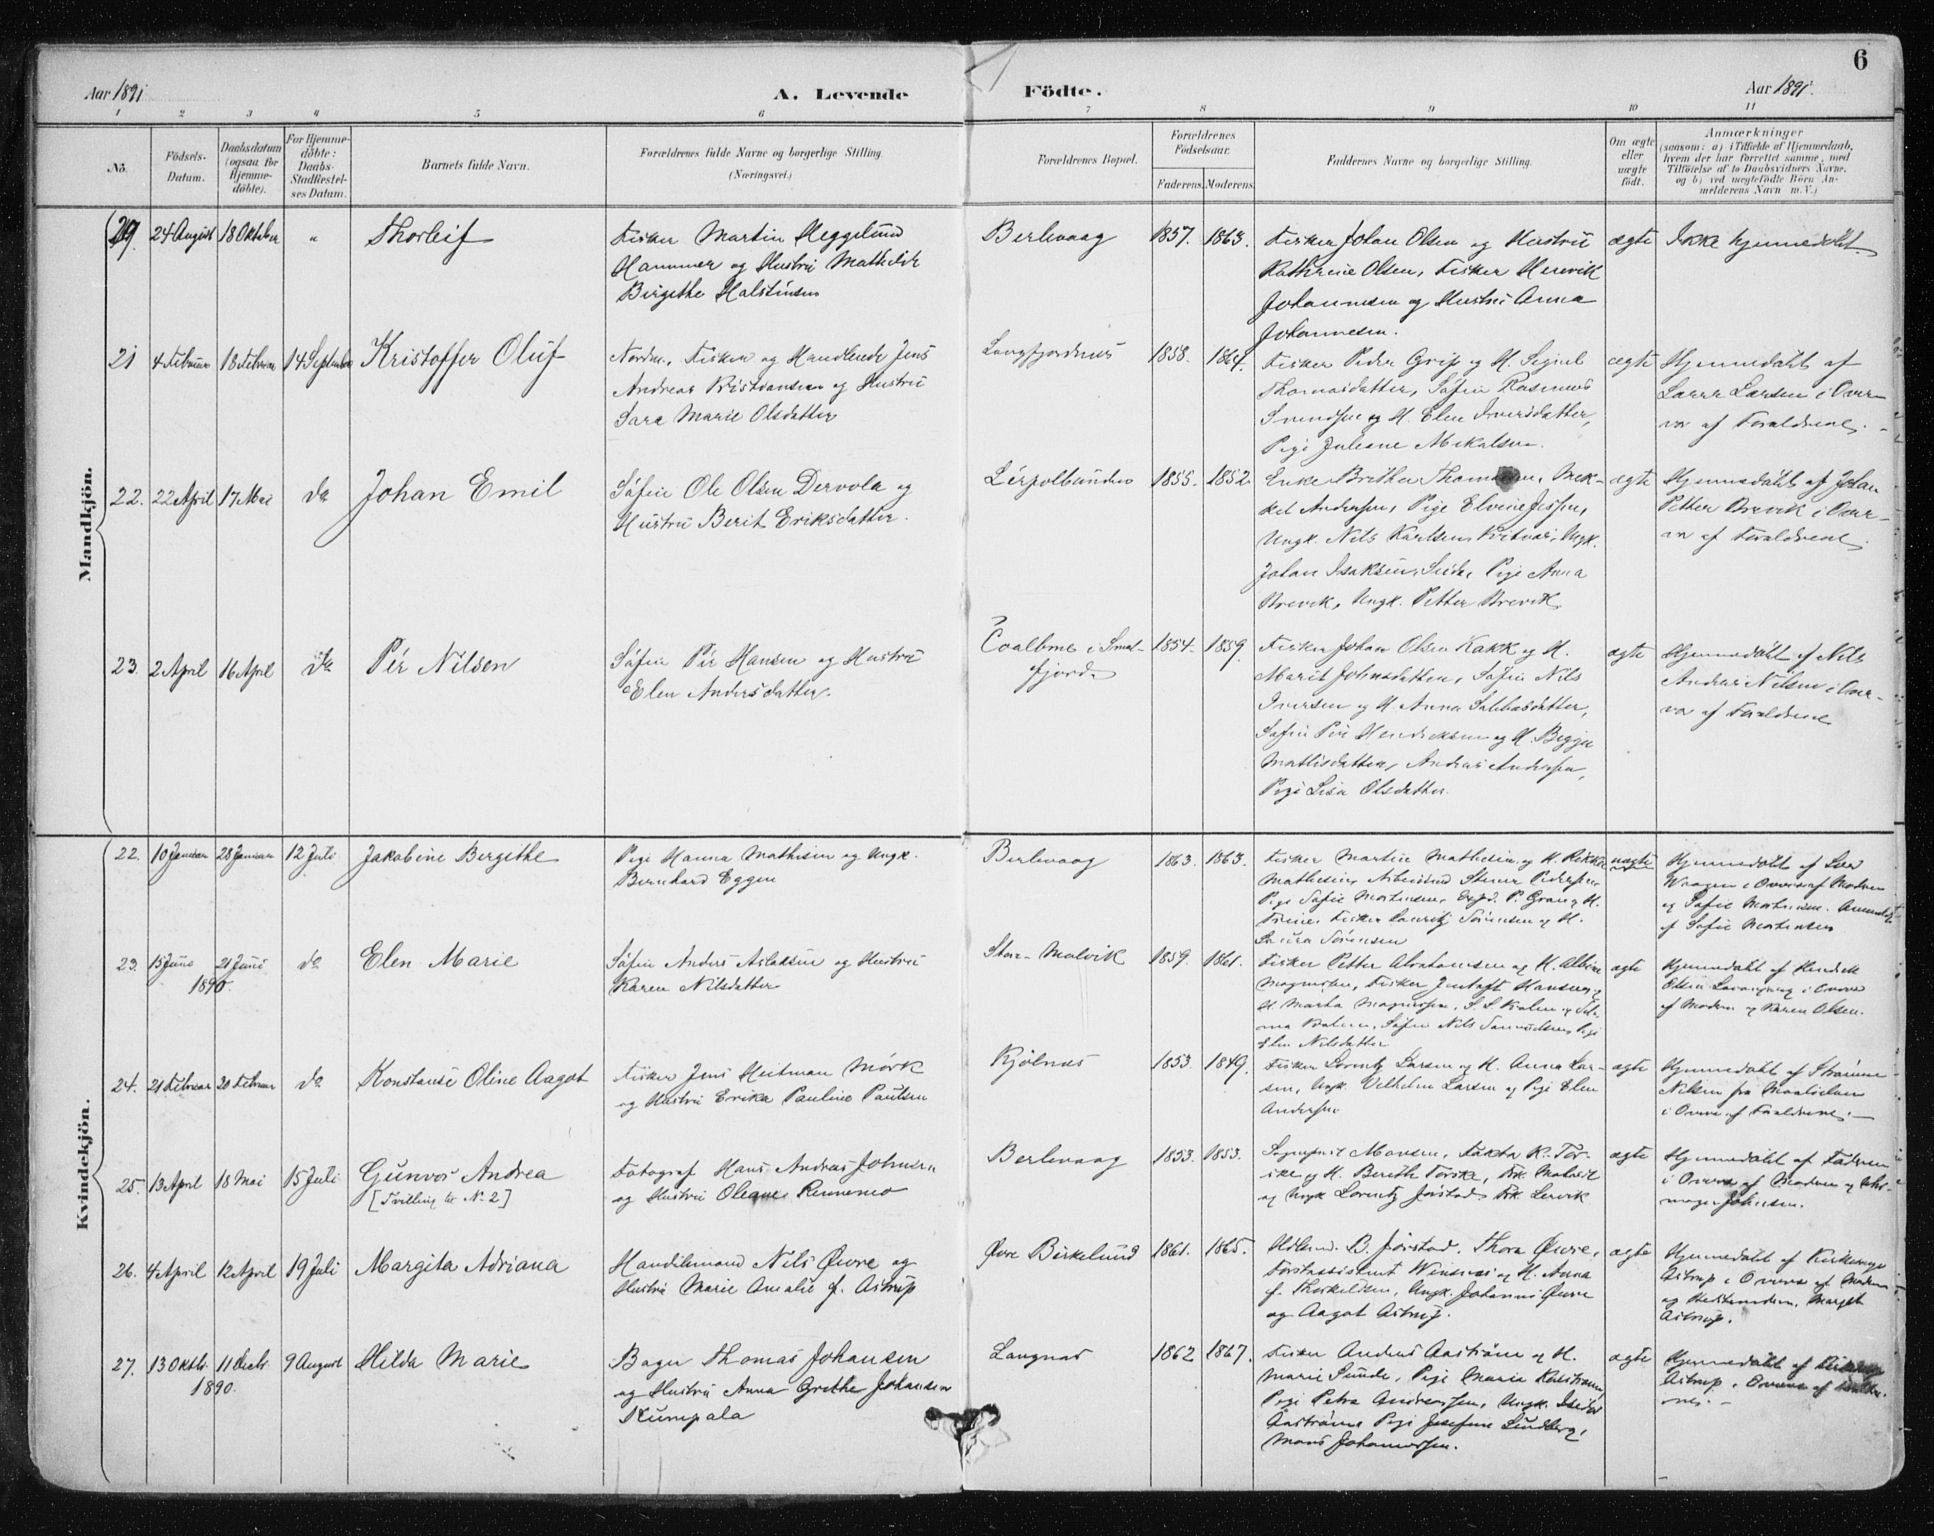 6
Aar 1891
A. Levende
Födte.
Aar 1891.
1 2 3 4 5 6 7 8 9 10 11
No.
Födsels-
Datum.
Daabsdatum
(ogsaa for
Hjemme-
döbte).
For Hjemme-
döbte:
Daabs-
Stadfæstel-
ses Datum.
Barnets fulde Navn.
Forældrenes fulde Navne og borgerlige Stilling.
(Næringsvei.)
Forældrenes Bopæl.
Forældrenes
Födselsaar.
Faderens. Moderens.
Faddernes Navne og borgerlige Stilling.
Om ægte
eller
uægte
födt.
Anmærkninger
(saasom: a) i Tilfælde af Hjemmedaab,
hvem der har forrettet samme, med
Tilföielse af to Daabsvidners Navne,
og b) ved uægtefödte Börn An-
melderens Navn m. V.)
Mandkjön.
24 August 18 Oktober " Thorleif
Fisker Martin Heggelund
Hammer og Hustru Mathilde
Birgithe Halstensen
Berlevaag 1857. 1863.
Fisker Johan Olsen og Hustru
Kathrine Olsen, Fisker
Johannesen og Hustru Anna
Johannesen.
ægte Ikke hjemmedøbt.
21 4 Februar 18 Februar 14 September Kristoffer Oluf
Fisker og Handlende Jens
Andreas Kristiansen og Hustru
Sara Marie Olsdatter
Langfjordnes 1858. 1864.
Fisker Peder Grip og H.
Thomasdatter, Søfin Rasmus
og H. Elen Iversdatter,
Pige Juliane Mikalsen.
ægte Hjemmedøbt af
Larsen i Over-
vær af Forældrene.
22. 22 April 17 Mai do Johan Emil
Søfin Ole Olsen Dervola og
Hustru Berit Eriksdatter.
1855. 1852
Enke Brithe
Andersen, Pige Elvine Jessen,
Ungk. Nils Karlsen Ungk.
Johan Isaksen Pige Anna
Brevik, Ungk. Petter Brevik
ægte Hjemmedøbt af Johan
Petter Brevik i Over-
vær af Forældrene.
23. 2 April 16 April do Pér Nilsen
Søfin Pér Hansen og Hustru
Elen Andersdatter.
i Smal-
fjord. 1854. 1859.
Fisker Johan Olsen Kakk og H.
Marit Johnsdatter, Søfin Nils
Iversen og H. Anna Sabbasdatter,
Søfin Per Hendriksen og H. Biggja
Mathisdatter, Andreas Andersen,
Pige Lisa Olsdatter.
ægte Hjemmedøbt af Nils
Andreas Nilsen i Over-
vær af Forældrene
Kvindekjön.
22. 10 Januar 28 Januar 12 Juli Jakobine Bergithe
Pige Hanna Mathisen og Ungk.
Bernhard Eggen
Berlevaag 1863. 1863.
Fisker Martin Mathisen og H. Rikke
Mathisen, Pedersen,
Pige Sofie Mortensen, P. Gran og H.
Trine, Fisker Lauritz Sørensen og H.
Laura Sørensen
uægte Hjemmedøbt af
i Overvær af Moderen
og Sofie Mortensen.
af Sofie Mortensen
23. 15 Juni 21 Juni
1890. do Elen Marie
Søfin Anders Aslaksen og Hustru
Karen Nilsdatter
Store-Molvik 1859. 1861.
Fisker Petter Abrahamsen og H. Albine
Magnussen, Fisker Hansen og
H. Marta Magnussen,
Søfin Nils Samuelsen, Pige
Elen Nilsdatter
ægte Hjemmedøbt af Hendrik
Olsen i Overvær
af Moderen og Karen Olsen.
24. 21 Februar Februar do Konstanse Oline Aagot
Fisker Jens Heitman Mørk
og Hustru Erika Pauline Paulsen
Kjølnæs 1853. 1849.
Fisker Lorentz Larsen og H. Anna Lar-
sen, Ungk. Vilhelm Larsen og Pige Elen
Andersen
ægte Hjemmedøbt af
Nilsen fra Maalselven
i Overvær af Forældrene.
25. 13 April 18 Mai 15 Juli Gunvor Andrea
[Tvilling til N. 2]
Fotograf Hans Andreas Johnsen
og Hustru Oleane Rennemo
Berlevaag 1853. 1853.
og H. Bereth Torske, Frk. Molvik
og Ungk Lorentz Jørstad, Frk Lervik
ægte Hjemmedøbt af Faderen
i Overvær af Moderen og
Johnsen.
26. 4 April 12 April 19 Juli Margita Adriana
Handelsmand Nils Øwre og
Hustru Marie Amalie f. Astrup
Øvre Birkelund 1861. 1865.
B. Jørstad. Thora Øwre,
Forstassistent og H. Anna
f. Thorkildsen, Ungk. Johannes Øwre
og Aagot Astrup.
ægte Hjemmedøbt af
Astrup i Overvær af Moderen
og Margit
Astrup.
27. 13 Oktb. 11 Decb.
1890. 9 August Hilda Marie
Bager Thomas Johansen
og Hustru Anna Grethe Johansen
Kumpala
Langnes 1862 1867.
Fisker Anders Aastrøm og H.
Marie Sunde, Pige Maria
Pige Petra Andreassen, Ungk. Isidor
Aastrøm, Pige Josefine Lindberg,
Mons Johannessen.
ægte Hjemmedøbt af
Astrup i Overvær af